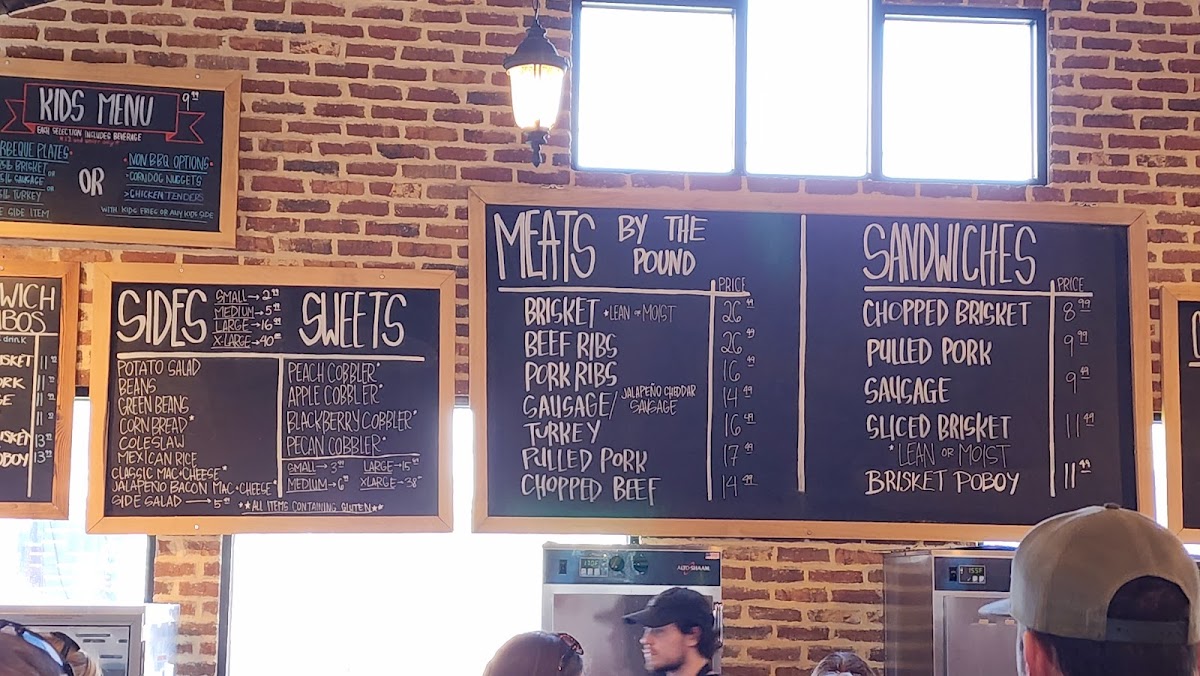 KIDS MENU 9.99
EACH SELECTION INCLUDES BEVERAGE
RBEQUE PLATES
BRISKET OR
SAUSAGE OR
TURKEY
SIDE ITEM
OR
*NON BBQ OPTIONS*
>CORNDOG NUGGETS
>CHICKEN TENDERS
WITH KIDS FRIES OR ANY KIDS SIDE
WICH
BOS
drink
SKET 11
ORK 11
GE 11
11
SKET 13
OBOY 13
SIDES
SMALL → 2.99
MEDIUM → 5
LARGE → 16
X-LARGE → 40
POTATO SALAD
BEANS
GREEN BEANS
CORNBREAD*
COLESLAW
MEXICAN RICE
CLASSIC MAC+CHEESE*
JALAPEÑO BACON MAC+CHEESE*
SIDE SALAD → 5
SWEETS
PEACH COBBLER*
APPLE COBBLER*
BLACKBERRY COBBLER*
PECAN COBBLER*
SMALL → 3 LARGE → 15
MEDIUM → 6 XLARGE → 38
**ALL ITEMS CONTAINING GLUTEN**
MEATS BY THE
POUND
PRICE
BRISKET *LEAN OR MOIST 26.49
BEEF RIBS 26.49
PORK RIBS 16.49
SAUSAGE/ JALAPEÑO CHEDDAR SAUSAGE 14.49
TURKEY 16.49
PULLED PORK 17.49
CHOPPED BEEF 14.49
SANDWICHES
PRICE
CHOPPED BRISKET 8.99
PULLED PORK 9.99
SAUSAGE 9.49
SLICED BRISKET 11.49
*LEAN OR MOIST
BRISKET POBOY 11.49
ALTO-SHAAM
155F